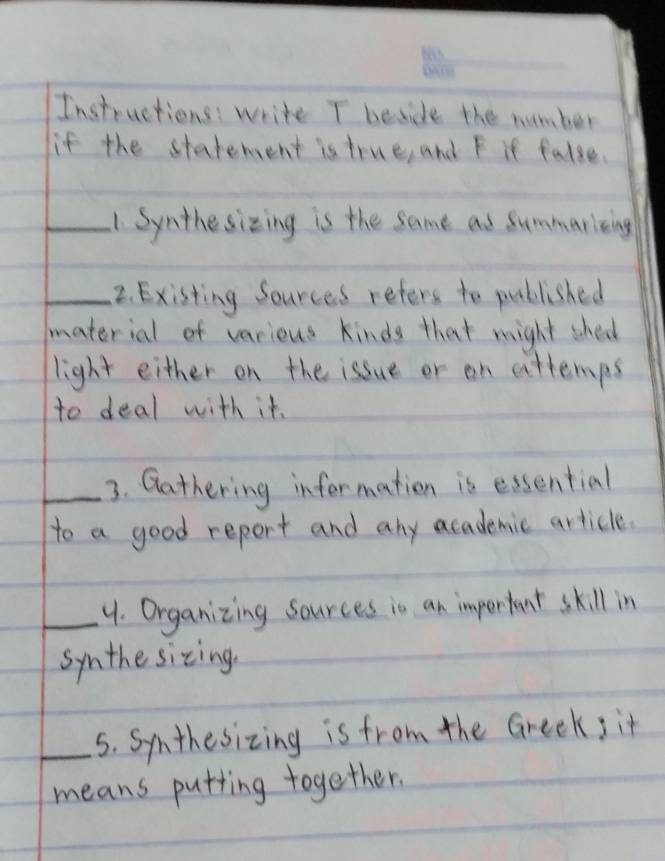 Instructions: Write T beside the number
if the statement is true, and F if false.
____1. Synthesizing is the same as summarizing
____2. Existing Sources refers to published
material of various kinds that might shed
light either on the issue or on attemps
to deal with it.
____3. Gathering information is essential
to a good report and any academic article.
____4. Organizing sources is an important skill in
synthesizing.
____5. Synthesizing is from the Greek; it
means putting together.